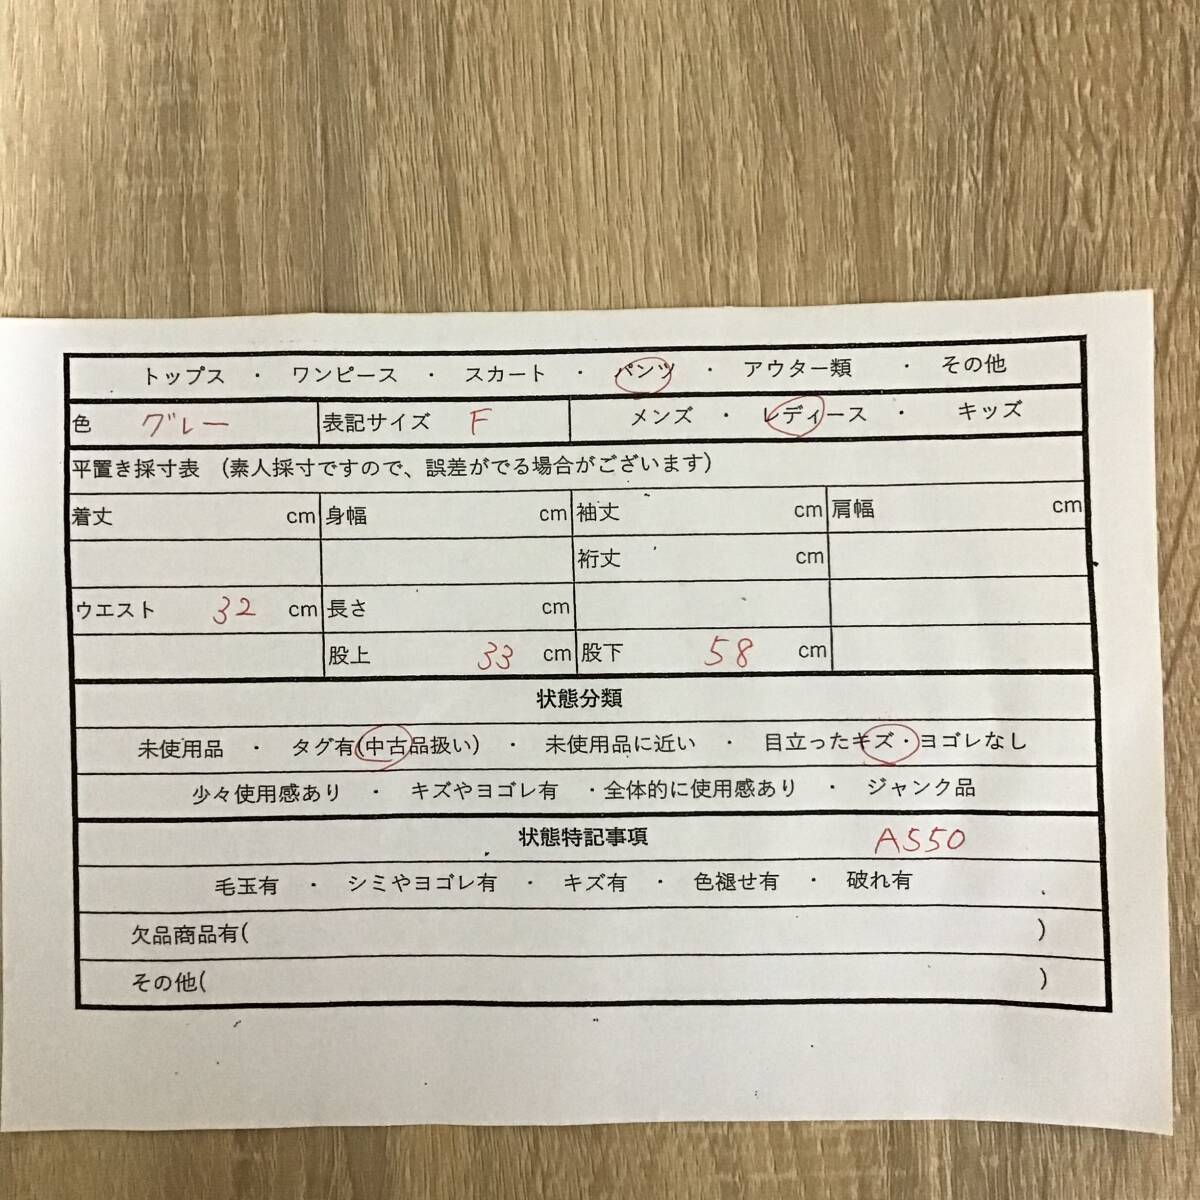 トップス ・ ワンピース ・ スカート ・ パンツ ・ アウター類 ・ その他
色 グレー 表記サイズ F メンズ ・ レディース ・ キッズ
平置き採寸表 (素人採寸ですので、誤差がでる場合がございます)
着丈 cm 身幅 cm 袖丈 cm 肩幅 cm
裄丈 cm
ウエスト 32 cm 長さ cm
股上 33 cm 股下 58 cm
状態分類
未使用品 ・ タグ有(中古品扱い) ・ 未使用品に近い ・ 目立ったキズ・ヨゴレなし
少々使用感あり ・ キズやヨゴレ有 ・全体的に使用感あり ・ ジャンク品
状態特記事項 A550
毛玉有 ・ シミやヨゴレ有 ・ キズ有 ・ 色褪せ有 ・ 破れ有
欠品商品有( )
その他( )